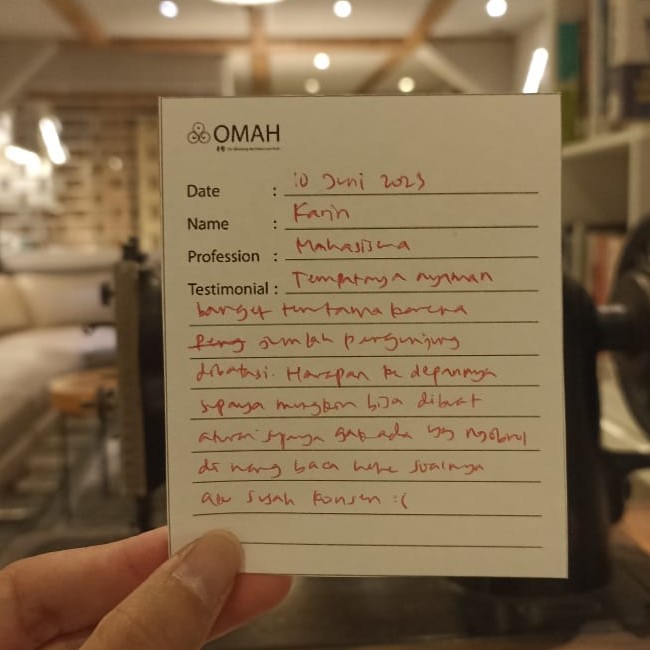 OMAH
Date : 10 Juni 2023
Name : Karin
Profession : Mahasiswa
Testimonial : Tempatnya nyaman
banget terutama karena
jumlah pengunjung
dibatasi. Harapan ke depannya
supaya mungkin bisa dibuat
aturan supaya gak ada yg ngobrol
di ruang baca hehe soalnya
aku susah konsen :(